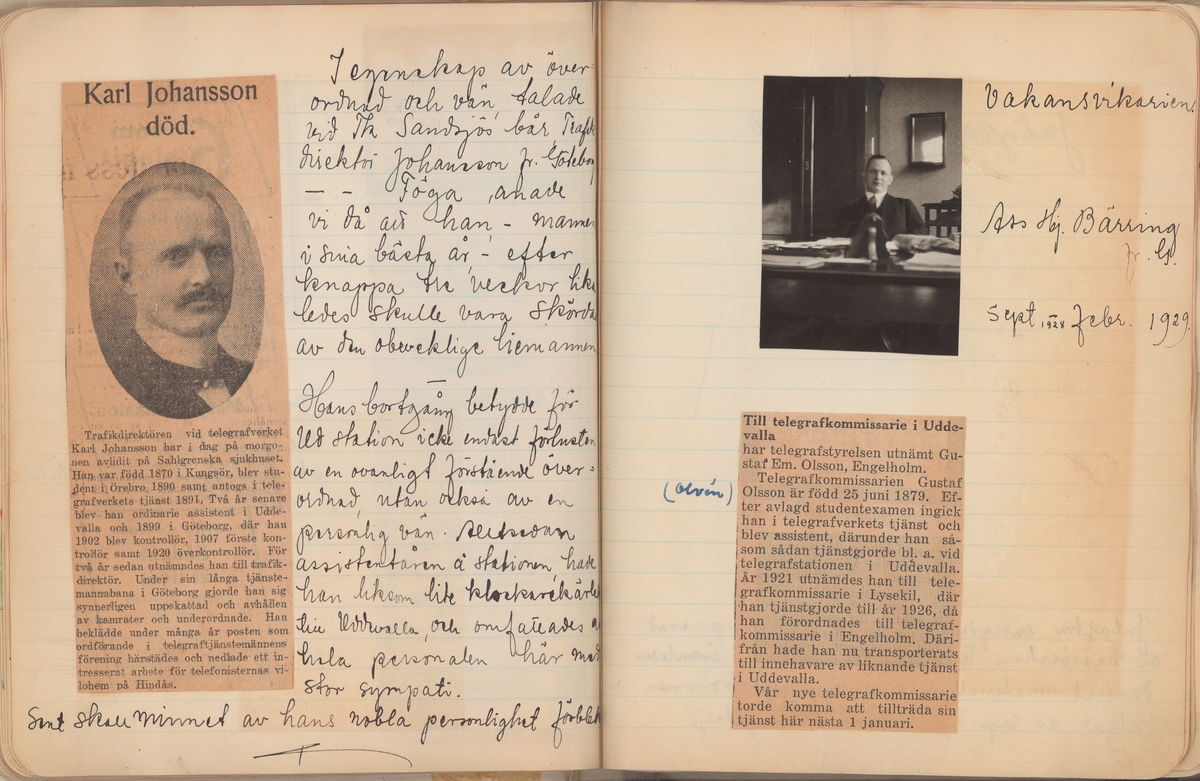 Karl Johansson
död.
Trafikdirektören vid telegrafverket
Karl Johansson har i dag på morgo-
nen avlidit på Sahlgrenska sjukhuset.
Han var född 1870 i Kungsör, blev stu-
dent i Örebro 1890 samt antogs i tele-
grafverkets tjänst 1891. Två år senare
blev han ordinarie assistent i Udde-
valla och 1899 i Göteborg, där han
1902 blev kontrollör, 1907 förste kon-
trollör samt 1920 överkontrollör. För
två år sedan utnämndes han till trafik-
direktör. Under sin långa tjänste-
mannabana i Göteborg gjorde han sig
synnerligen uppskattad och avhållen
av kamrater och underordnade. Han
beklädde under många år posten som
ordförande i telegraftjänstemännens
förening härstädes och nedlade ett in-
tresserat arbete för telefonisternas vi-
lohem på Hindås.
I egenskap av över-
ordnad och vän talade
vid Tk Sandsjös bår Trafik
direktör Johansson fr. Göteborg
— — Föga anade
vi då att han - mannen
i sina bästa år - efter
knappa tre veckor lika
ledes skulle vara skördad
av den obeveklige liemannen
Hans bortgång betydde för
Ud station icke endast förlusten
av en ovanligt förstående över-
ordnad, utan också av en
personlig vän. Alltsedan
assistentåren å stationen hade
han liksom lite klockarekärlek
till Uddevalla, och omfattades av
hela personalen här med
stor sympati.
Sent skall minnet av hans nobla personlighet förblekna
Vakansvikarien.
Ass Hj. Bärring
fr. G.
Sept 1928 - Febr. 1929.
Till telegrafkommissarie i Udde-
valla
har telegrafstyrelsen utnämt Gu-
staf Em. Olsson, Engelholm.
(Olvén)
Telegrafkommissarien Gustaf
Olsson är född 25 juni 1879. Ef-
ter avlagd studentexamen ingick
han i telegrafverkets tjänst och
blev assistent, därunder han så-
som sådan tjänstgjorde bl. a. vid
telegrafstationen i Uddevalla.
År 1921 utnämdes han till tele-
grafkommissarie i Lysekil, där
han tjänstgjorde till år 1926, då
han förordnades till telegraf-
kommissarie i Engelholm. Däri-
från hade han nu transporterats
till innehavare av liknande tjänst
i Uddevalla.
Vår nye telegrafkommissarie
torde komma att tillträda sin
tjänst här nästa 1 januari.